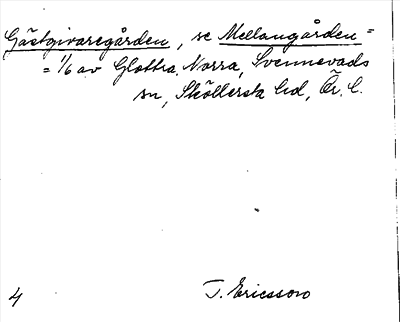 Gästgivaregården, se Mellangården =
= 1/6 av Glottra Norra, Svennevads
sn, Sköllersta hd, Ör. l.
4 T. Ericsson